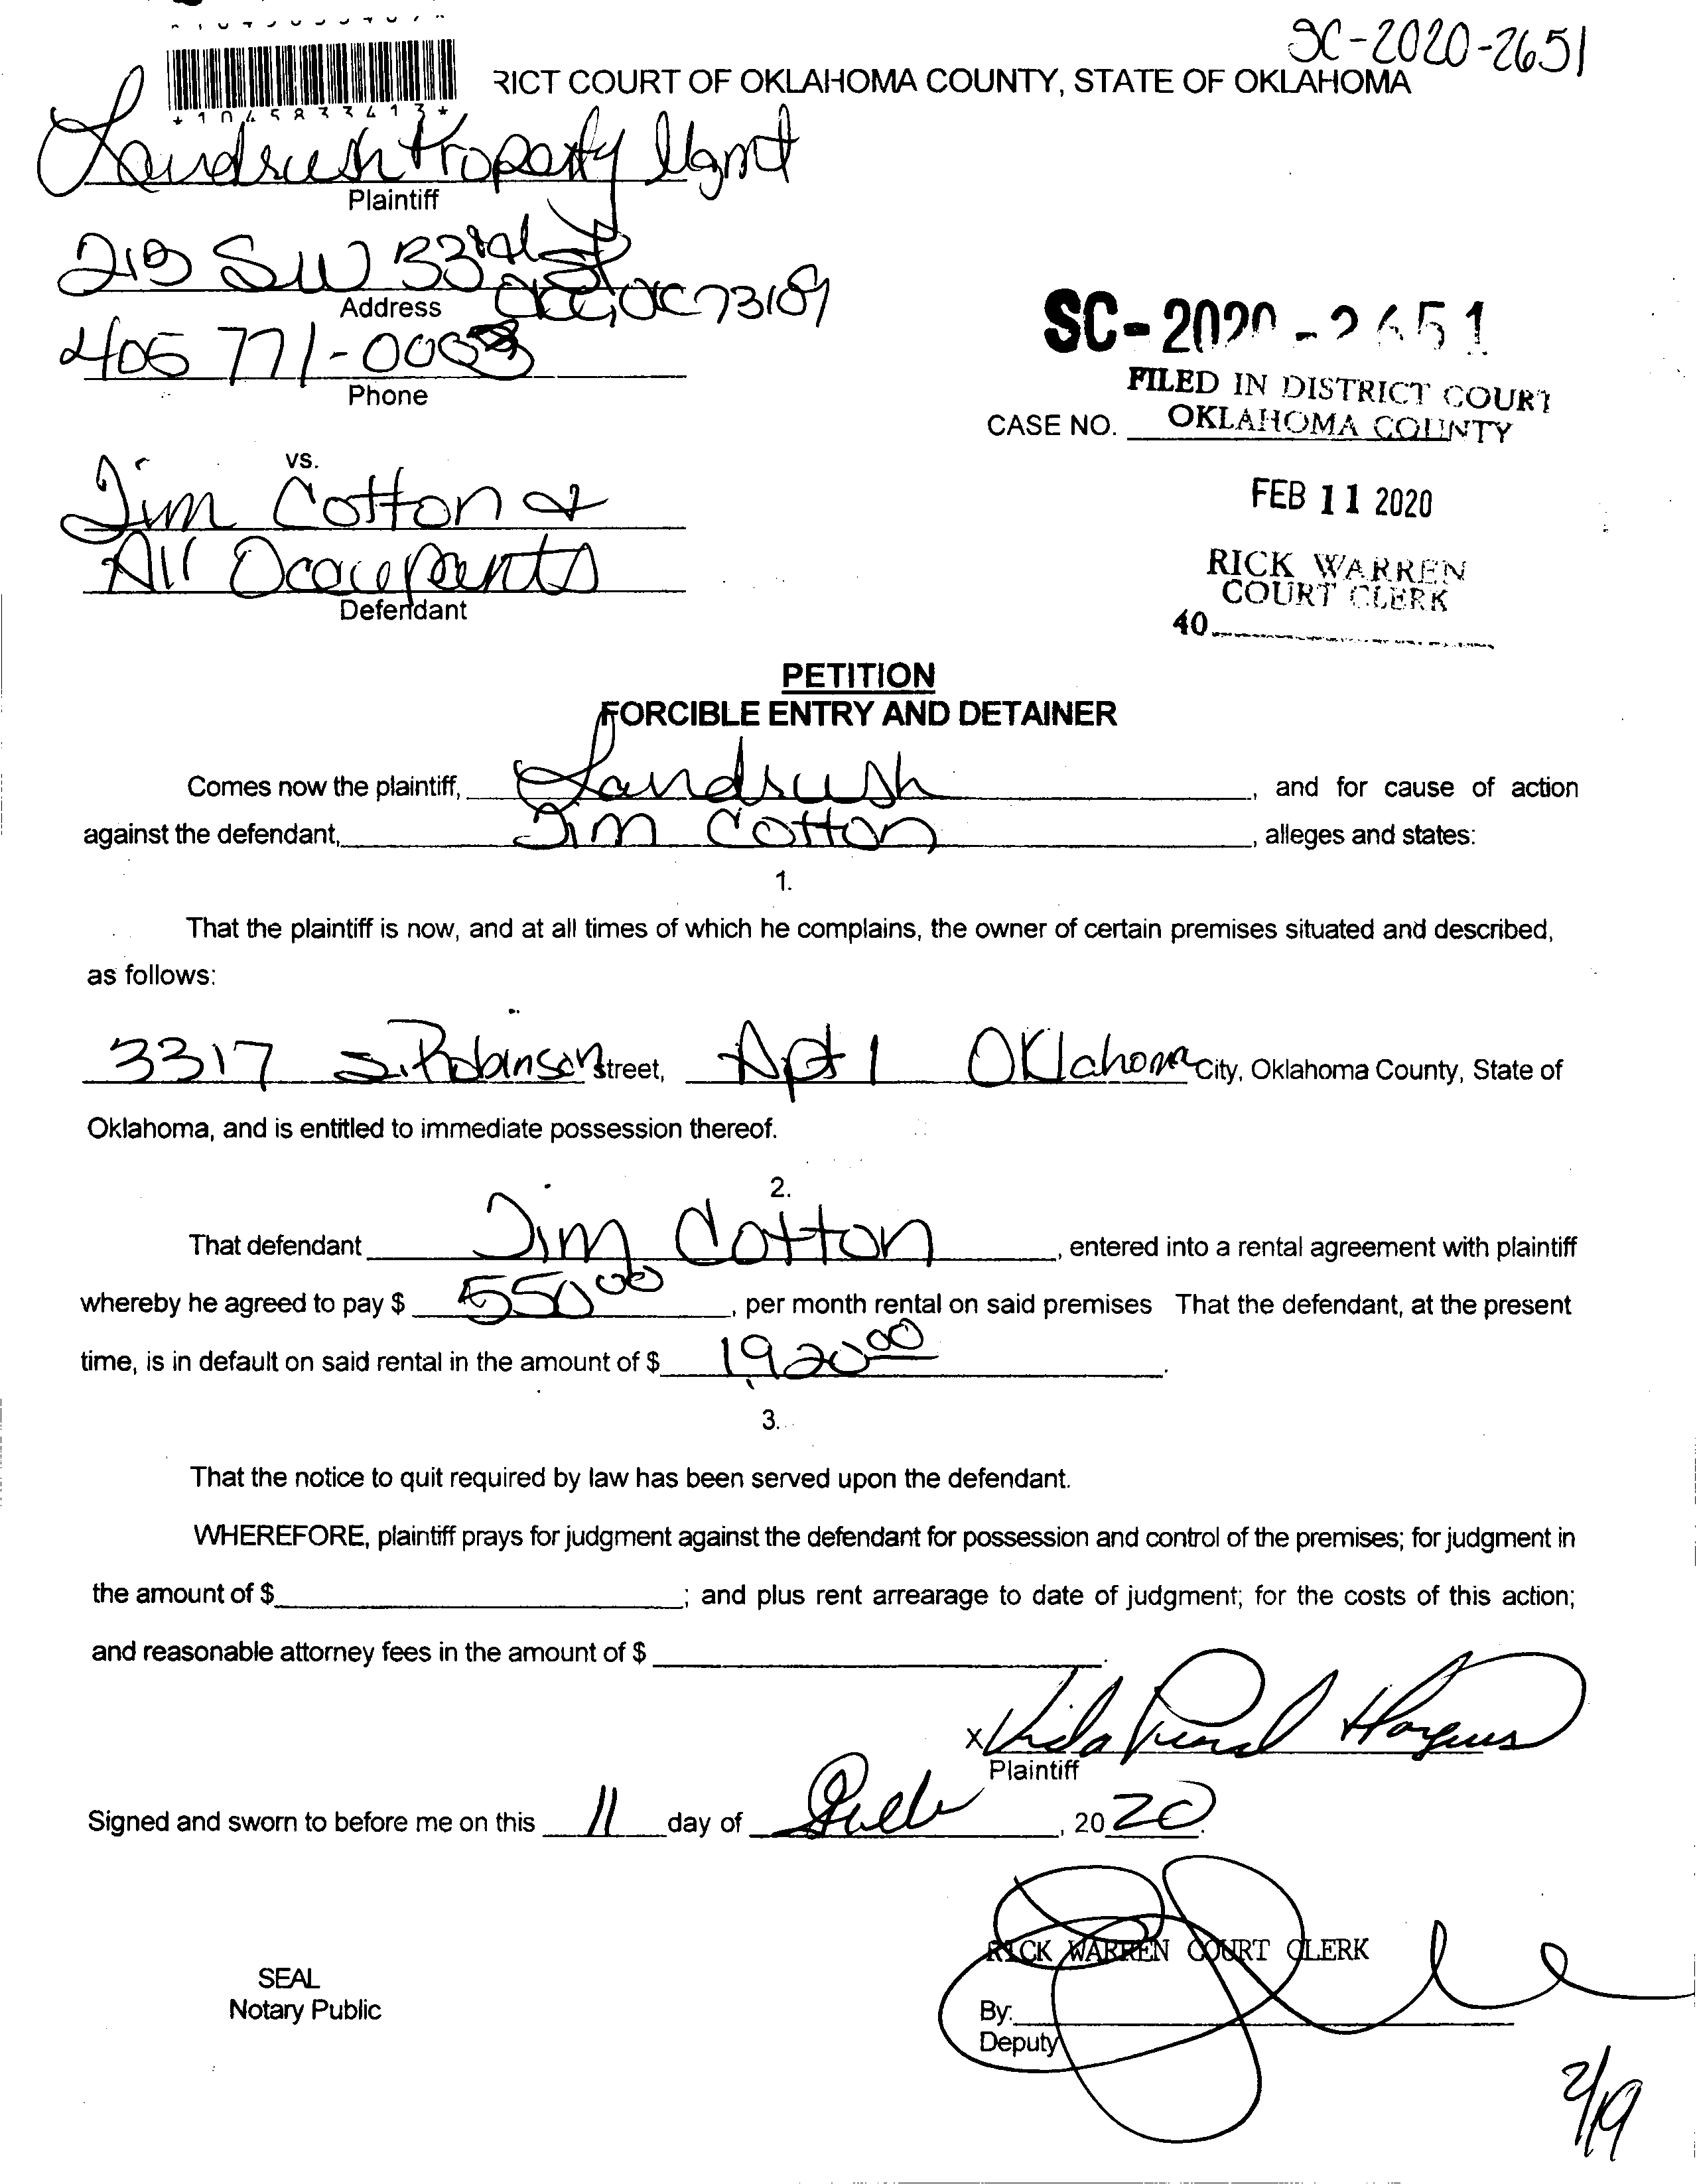 SC-2020-2651
RICT COURT OF OKLAHOMA COUNTY, STATE OF OKLAHOMA
*1045833413*
Landrush Property Mgmt
Plaintiff
219 SW 33rd St
Address OKC, OK 73109
405 771-0003
Phone
SC-2020-2651
FILED IN DISTRICT COURT
CASE NO. OKLAHOMA COUNTY
FEB 11 2020
RICK WARREN
COURT CLERK
40
vs.
Jim Cotton &
All Occupants
Defendant
PETITION
FORCIBLE ENTRY AND DETAINER
Comes now the plaintiff, Landrush, and for cause of action
against the defendant, Jim Cotton, alleges and states:
1.
That the plaintiff is now, and at all times of which he complains, the owner of certain premises situated and described,
as follows:
3317 S. Robinson Street, Apt 1 Oklahoma City, Oklahoma County, State of
Oklahoma, and is entitled to immediate possession thereof.
2.
That defendant Jim Cotton, entered into a rental agreement with plaintiff
whereby he agreed to pay $ 550 00, per month rental on said premises That the defendant, at the present
time, is in default on said rental in the amount of $ 1,920 00.
3.
That the notice to quit required by law has been served upon the defendant.
WHEREFORE, plaintiff prays for judgment against the defendant for possession and control of the premises; for judgment in
the amount of $ ; and plus rent arrearage to date of judgment; for the costs of this action;
and reasonable attorney fees in the amount of $ .
x
Plaintiff
Signed and sworn to before me on this 11 day of , 2020.
RICK WARREN COURT CLERK
SEAL
Notary Public
By:
Deputy
2/19